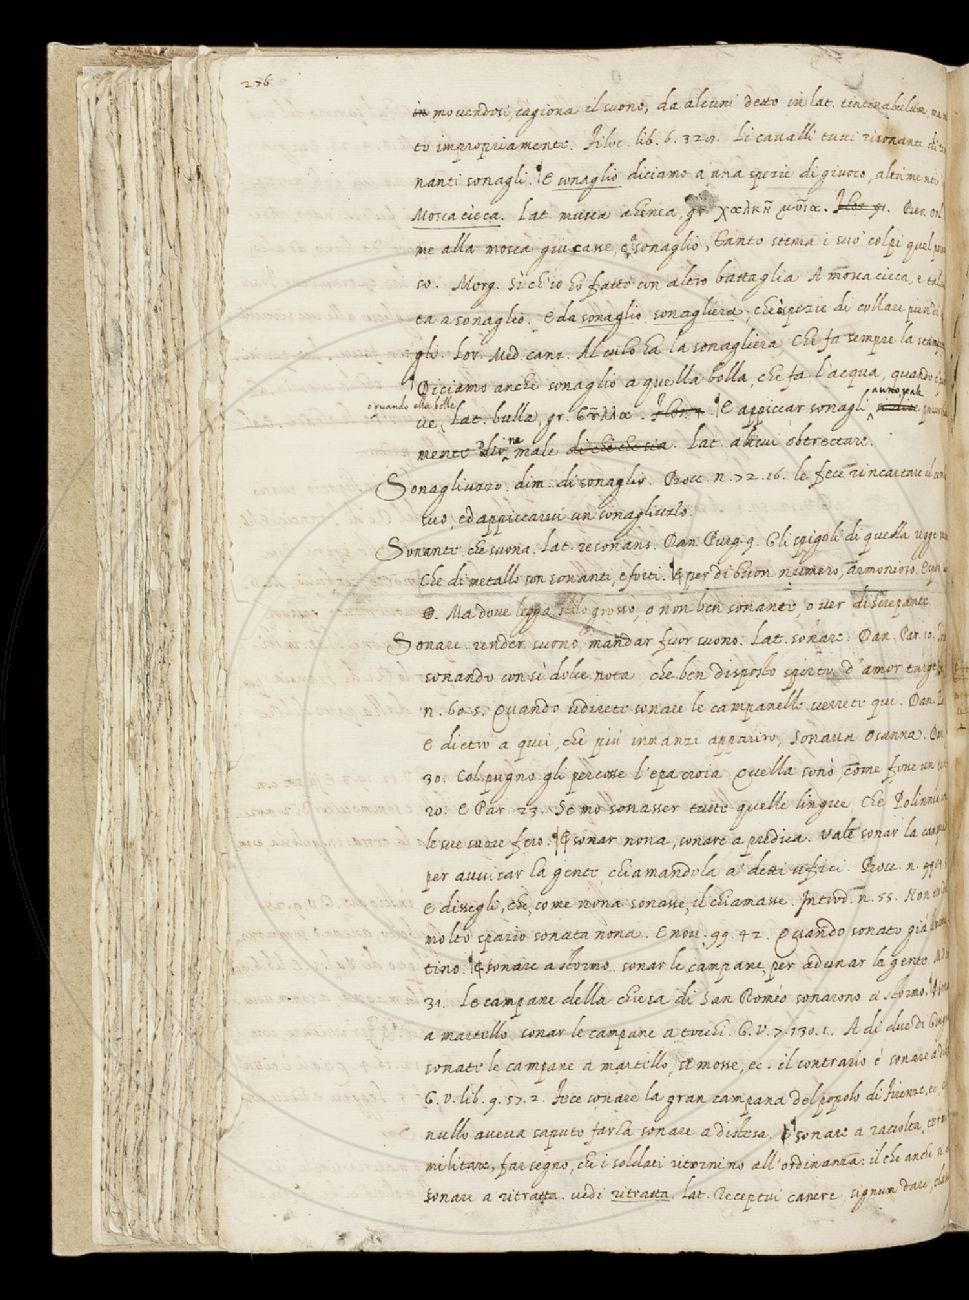 276
in movendosi, cagiona il suono, da alcuni detto in lat. tintinabulum, ma
to impropriamente. Filoc. lib. 6. 329. Li cavalli tutti risonanti di
nanti sonagli. E sonaglio diciamo a una spezie di giuoco, altrimenti
Mosca cieca. Lat. musca ahenea, gr. χαλκῆ μυῖα. Ber. Orl.
me alla mosca giucasse, e a sonaglio, Tanto stima i suo' colpi quel
so. Morg. Sì ch'io ho fatto con altro battaglia A mosca cieca, e tal
ta a sonaglio. E da sonaglio sonagliera, che è spezie di collare pien di
gli. Lor. Med. canz. Al culo ha la sonagliera, Che fa sempre la
Diciamo anche sonaglio a quella bolla, che fa l'acqua, quando e' pio
o quando ella bolle
ve, Lat. bulla, gr. E appiccar sonagli
mente dirne male di chi che sia. Lat. alicui obtrectare.
Sonagliuzzo. dim. di sonaglio. Bocc. n. 72. 16. le fece rincartare il cem
suo, ed appiccarvi un sonagliuzlo.
Sonante, che suona. Lat. resonans. Dan. Purg. 9. Gli spigoli di quella regge
Che di metallo son sonanti, e forti. E per di buon numero, armonioso.
Ma dove legga stilo grosso, o non ben sonante, o ver discrepante
Sonare. render suono, mandar fuor suono. Lat. sonare. Dan. Par. 10.
sonando con sì dolce nota che ben disposto spirto d'amor turge
n. 60. 5. Quando udirete sonare le campanelle verrete qui. Dan.
E dietro a quei, che più innanzi appariro, Sonava Osanna.
30. Col pugno gli percosse l'epa croia Quella sonò, come fosse un
20. E Par. 23. Se mo sonasser tutte quelle lingue Che Polinnia
le sue suore fero. E sonar nona, sonare a predica. vale sonar la
per avvisar la gente, chiamandola a' detti ufici. Bocc. n.
E dissegli, che, come nona sonasse, il chiamasse. Introd. n. 55. Non
molto spazio sonata nona. E nov. 99. 42. Quando sonato già il
tino. E sonare a stormo. sonar le campane per adunar la gente.
31. Le campane della chiesa di San Romeo sonarono a stormo.
a martello sonar le campane a tocchi. G. V. 7. 130. 1. A dì due di Giugno
sonate le campane a martello, si mosse, ec. il contrario è sonare a
G. V. lib. 9. 57. 2. Fece sonare la gran campana del popolo di Firenze, ec,
nullo aveva saputo farla sonare a distesa. E sonare a raccolta,
militare, far segno, che i soldati ritornino all'ordinanza: il che anche
sonare a ritratta. vedi ritratta. Lat. Receptui canere, signum dare,